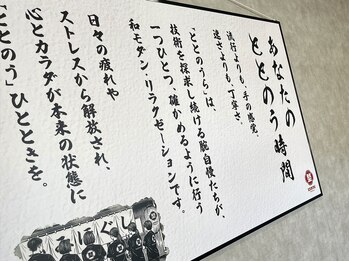 あなたの
ととのう時間
流行よりも、手の感覚。
速さよりも、丁寧さ。
「ととのうら」は、
技術を探求し続ける腕自慢たちが、
一つひとつ、確かめるように行う
和モダン・リラクゼーションです。
日々の疲れや
ストレスから解放され、
心とカラダが本来の状態に
「ととのう」ひとときを。
ほぐし